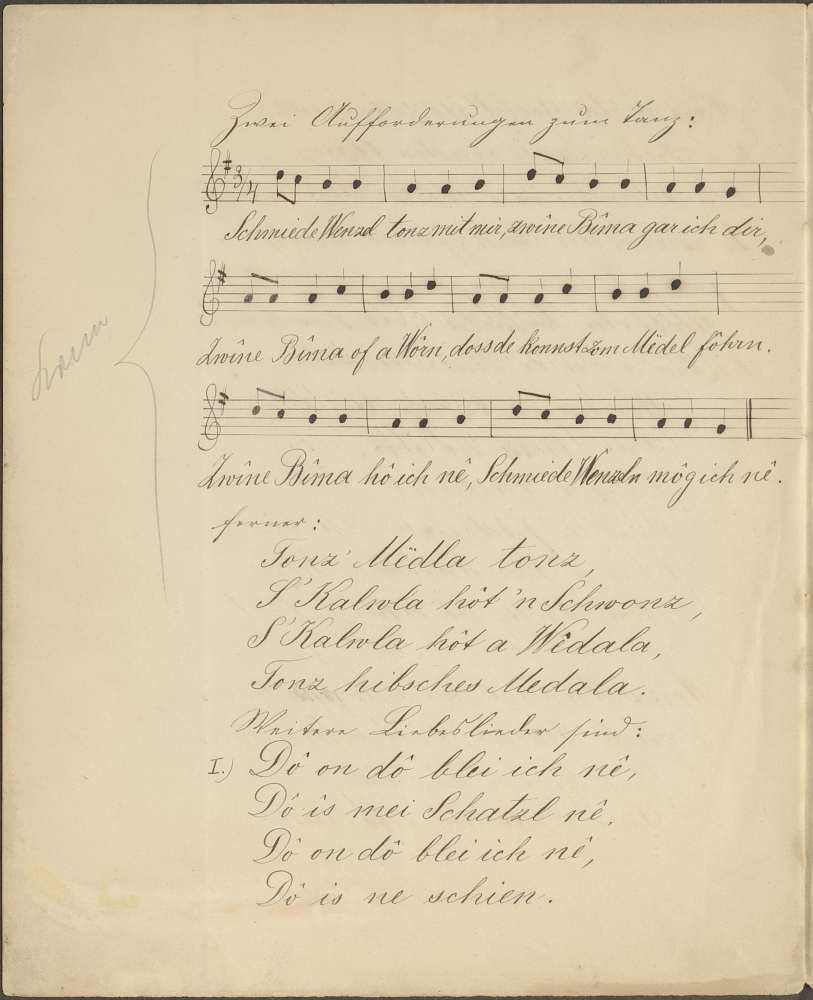 Zwei Aufforderungen zum Tanz:
3/4
Schmiede Wenzd tonz mit mir, zwîne Bîma gar ich dir,
Zwîne Bîma of a Wôrn, dossde konnst zom Mëdel fôhrn.
Zwîne Bîma hô ich nê, Schmiede Wenzln môg ich nê.
ferner:
Tonz' Mëdla tonz,
S' Kalwla hôt 'n Schwonz,
S' Kalwla hôt a Wêdala,
Tonz hibsches Medala.
Weitere Liebeslieder sind:
I.) Dô on dô blei ich nê,
Dô îs mei Schatzl nê.
Dô on dô blei ich nê,
Dô is ne schien.